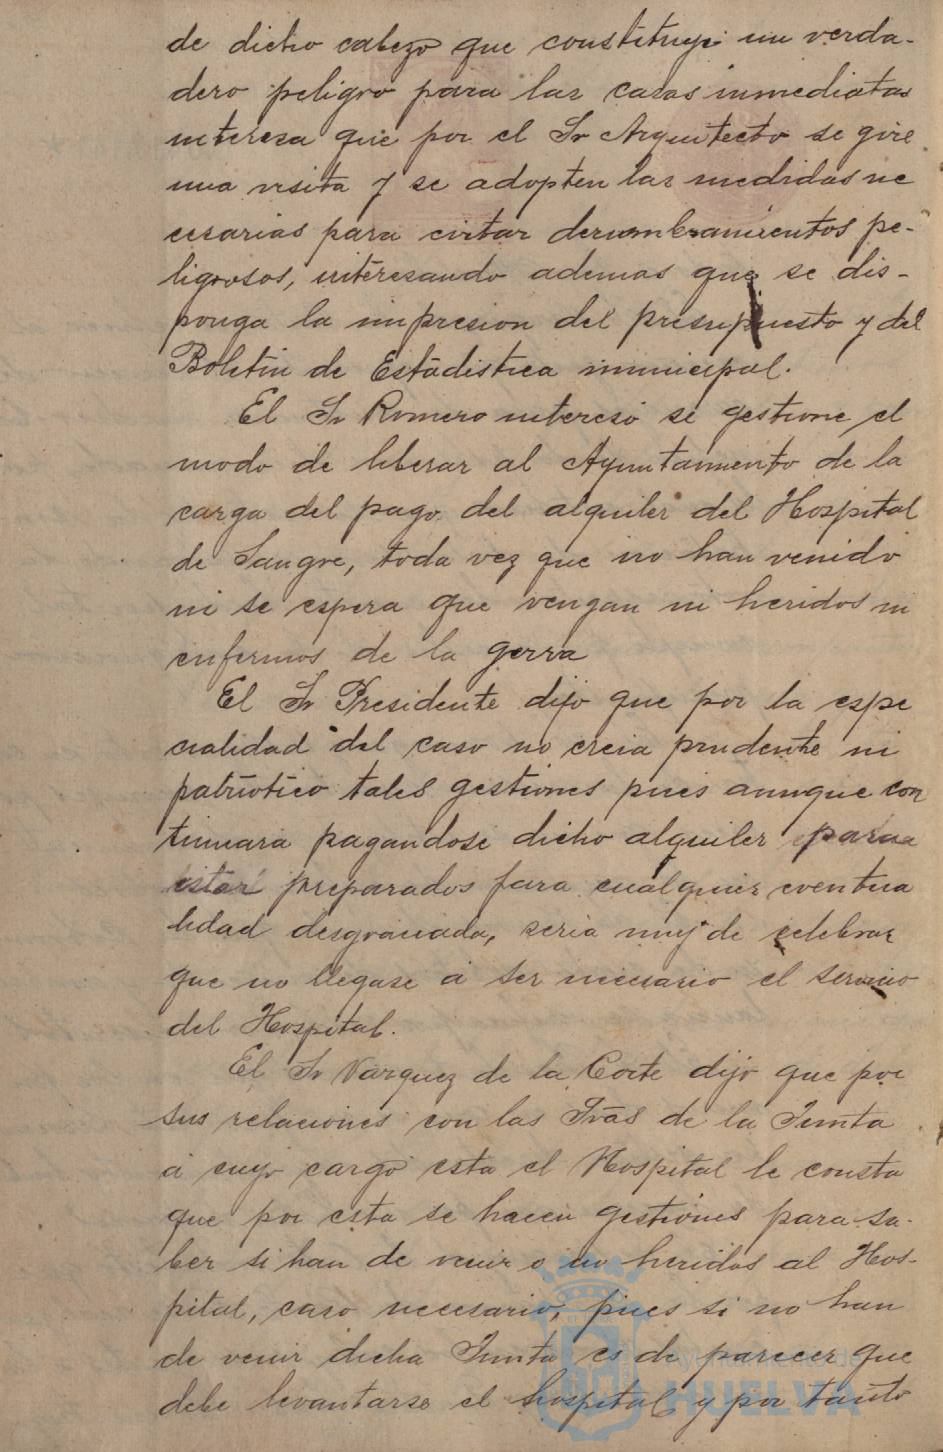 de dicho cabezo que constituye un verda-
dero peligro para las casas inmediatas
interesa que por el Sr Arquitecto se gire
una visita y se adopten las medidas ne
cesarias para evitar derrumbramientos pe-
ligrosos, interesando ademas que se dis-
ponga la impresion del presupuesto y del
Boletin de Estadistica municipal.
El Sr Romero interesó se gestione el
modo de liberar al Ayuntamiento de la
carga del pago del alquiler del Hospital
de Sangre, toda vez que no han venido
ni se espera que vengan ni heridos ni
enfermos de la gerra
El Sr Presidente dijo que por la espe
cialidad del caso no creia prudente ni
patriotico tales gestiones pues aunque con
tinuara pagandose dicho alquiler para
estar preparados para cualquier eventua
lidad desgraciada, seria muy de celebrar
que no llegase á ser necesario el servicio
del Hospital.
El Sr Vazquez de la Corte dijo que por
sus relaciones con las Sras de la Junta
á cuyo cargo esta el Hospital le consta
que por esta se hacen gestiones para sa-
ber si han de venir o no heridos al Hos-
pital, caso necesario, pues si no han
de venir dicha Junta es de parecer que
debe levantarse el hospital y por tanto
Ayuntamiento de
HUELVA